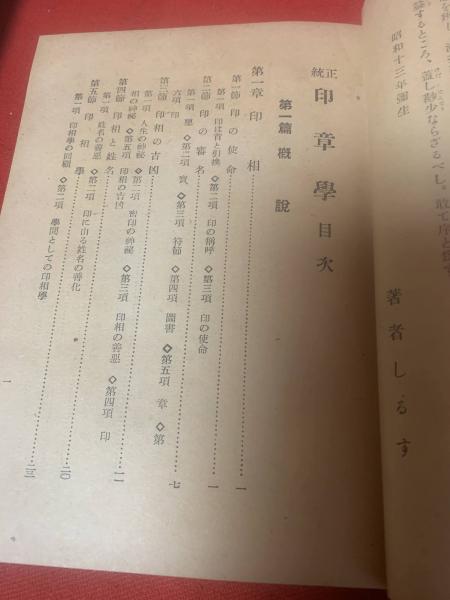 誌するところ、蓋し尠少ならざるべし。敢て序と爲す
昭和十三年彌生
著者しるす
正統 印章學目次
第一篇 概說
第一章 印相……一
第一節 印の使命……一
第一項 印は首と引換 ◇第二項 印の稱呼 ◇第三項 印の使命
第二節 印の審名……七
第一項 璽 ◇第二項 寳 ◇第三項 符節 ◇第四項 圖書 ◇第五項 章 ◇第
六項 印
第三節 印相の吉凶……一一
第一項 人生の神祕 ◇第二項 宻印の神祕 ◇第三項 印相の善惡 ◇第四項 印
相の神祕 ◇第五項 印相の吉凶
第四節 印相と姓名……二〇
第一項 姓名の善惡 ◇第二項 印に由る姓名の善化
第五節 印相學……二三
第一項 印相學の回顧 ◇第二項 學問としての印相學
一